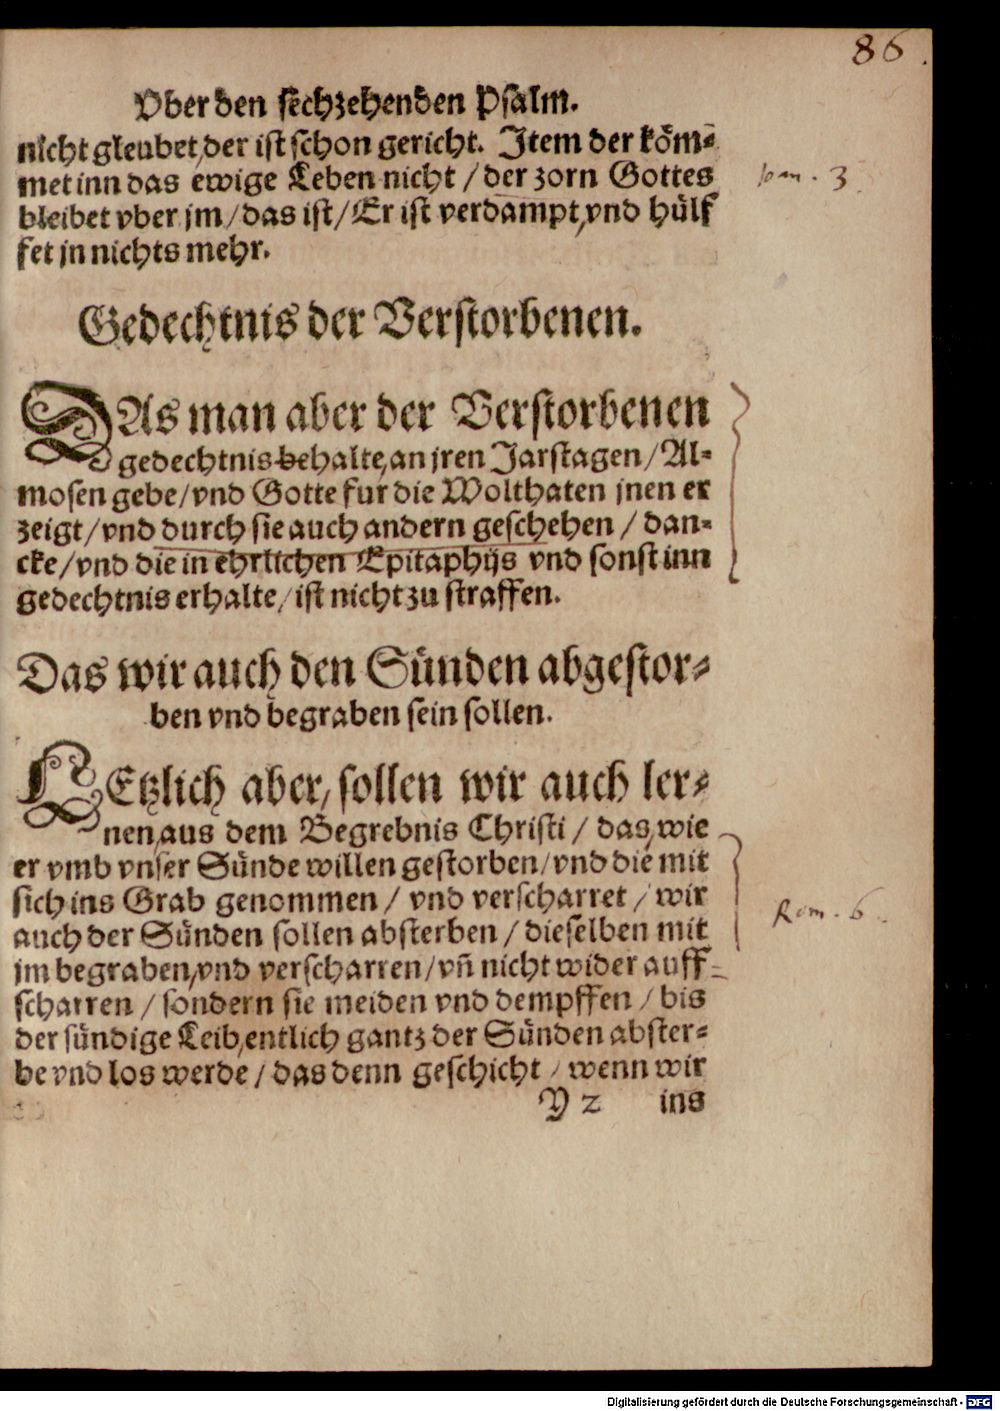 86.
Vber den sechzehenden Psalm.
nicht gleubet, der ist schon gericht. Item der köm-
met inn das ewige Leben nicht / der zorn Gottes
Joan. 3
bleibet vber jm / das ist / Er ist verdampt, vnd hülf
fet jn nichts mehr.
Gedechtnis der Verstorbenen.
DAs man aber der Verstorbenen
gedechtnis behalte, an jren Jarstagen / Al-
mosen gebe / vnd Gotte fur die Wolthaten jnen er
zeigt / vnd durch sie auch andern geschehen / dan-
cke / vnd die in ehrlichen Epitaphijs vnd sonst inn
gedechtnis erhalte / ist nicht zu straffen.
Das wir auch den Sünden abgestor-
ben vnd begraben sein sollen.
LEtzlich aber, sollen wir auch ler-
nen, aus dem Begrebnis Christi / das, wie
er vmb vnser Sünde willen gestorben / vnd die mit
sich ins Grab genommen / vnd verscharret / wir
Rom. 6.
auch der Sünden sollen absterben / dieselben mit
jm begraben, vnd verscharren / vñ nicht wider auff-
scharren / sondern sie meiden vnd dempffen / bis
der sündige Leib, entlich gantz der Sünden abster-
be vnd los werde / das denn geschicht / wenn wir
Y 2 ins
Digitalisierung gefördert durch die Deutsche Forschungsgemeinschaft - DFG